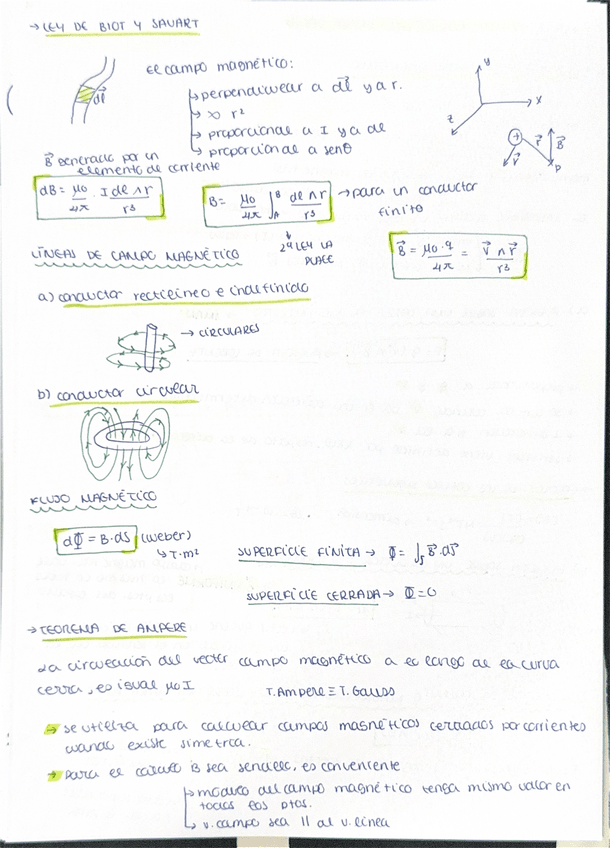 → LEY DE BIOT Y SAVART
El campo magnético:
dl
↳ perpendicular a dl y a r.
↳ ∝ r²
↳ proporcional a I y a dl
↳ proporcional a senθ
y
x
z
+
r
B
v
P
B generado por un
elemento de corriente
dB = μ0/4π · I dl ∧ r/r³
B = μ0/4π ∫_A^B dl ∧ r/r³ → para un conductor
finito
2ª LEY LA
PLACE
B = μ0·q/4π = v ∧ r/r³
LÍNEAS DE CAMPO MAGNÉTICO
a) conductor rectilíneo e indefinido
→ CIRCULARES
b) conductor circular
FLUJO MAGNÉTICO
dΦ = B·dS (weber)
↳ T·m²
SUPERFICIE FINITA → Φ = ∫s B·dS
SUPERFICIE CERRADA → Φ = 0
→ TEOREMA DE AMPERE
La circulación del vector campo magnético a lo largo de la curva
cerra, es igual μ0 I
T. Ampere ≡ T. Gauss
⇒ se utiliza para calcular campos magnéticos
por corrientes
cuando existe simetría.
⇒ para el cálculo B sea
es conveniente
↳ modulo del campo magnético tenga mismo valor en
todos los ptos.
↳ v. campo sea || al v. línea